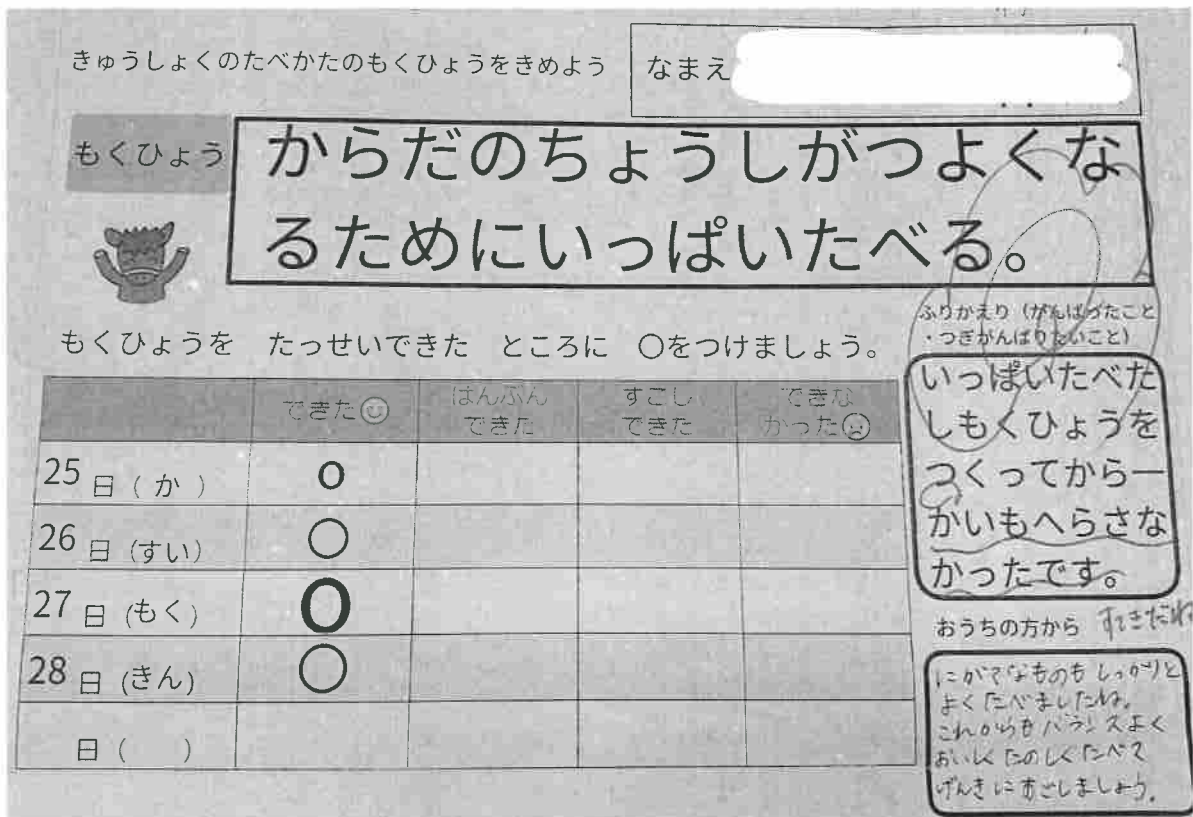 きゅうしょくのたべかたのもくひょうをきめよう
なまえ
もくひょう
からだのちょうしがつよくな
るためにいっぱいたべる。
もくひょうを たっせいできた ところに ○をつけましょう。
できた
はんぶん
できた
すこし
できた
できな
かった
25日(か) ○
26日(すい) ○
27日(もく) ○
28日(きん) ○
日( )
ふりかえり(がんばったこと
・つぎがんばりたいこと)
いっぱいたべた
しもくひょうを
つくってから一
かいもへらさな
かったです。
おうちの方から すてきだね
にがてなものもしっかりと
よくたべましたね。
これからもバランスよく
おいしくたのしくたべて
げんきにすごしましょう。